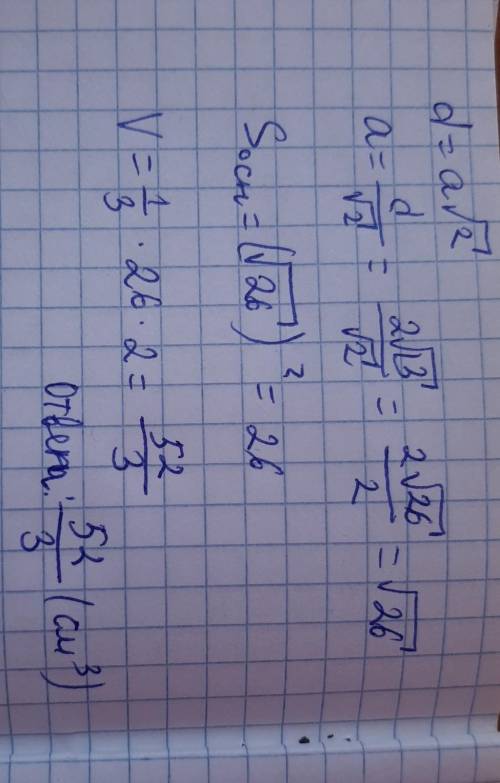 d = a√2
a = d/√2 = 2√13/√2 = 2√26/2 = √26
Sосн = (√26)² = 26
V = 1/3 · 26 · 2 = 52/3
Ответ: 52/3 (см³)